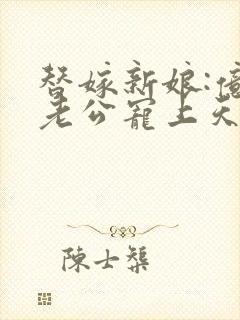 替嫁新娘:億
老公寵上天
陳士槊